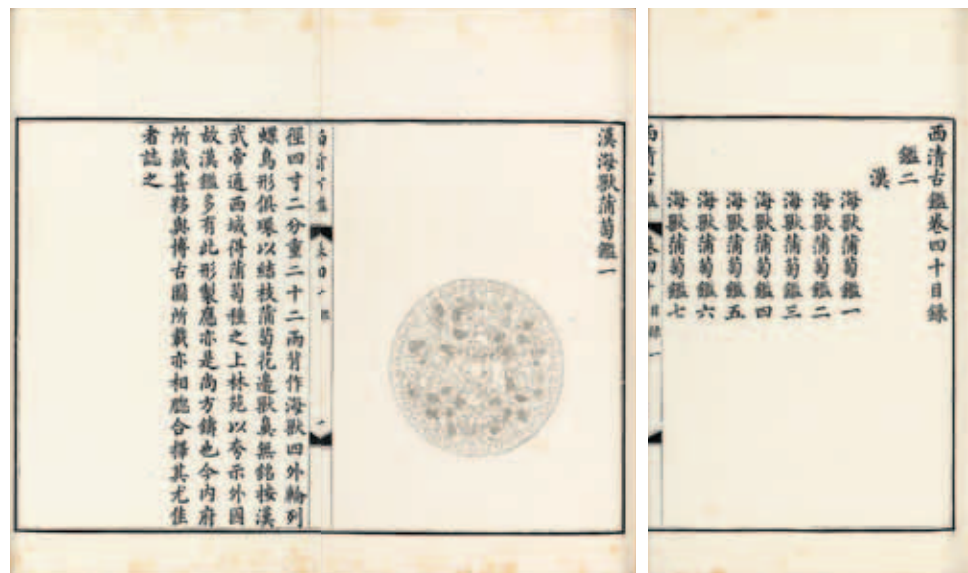 西清古鑑卷四十目錄
鑑二
漢
海獸蒲萄鑑一
海獸蒲萄鑑二
海獸蒲萄鑑三
海獸蒲萄鑑四
海獸蒲萄鑑五
海獸蒲萄鑑六
海獸蒲萄鑑七
西清古鑑
卷四十目錄
一
漢海獸蒲萄鑑一
徑四寸二分重二十二兩背作海獸四外輪列
螺鳥形俱環以結枝蒲萄花邊獸鼻無銘按漢
武帝通西域得蒲萄種之上林苑以夸示外國
故漢鑑多有此形製應亦是尚方鑄也今內府
所藏甚夥與博古圖所載亦相脗合擇其尤佳
者誌之